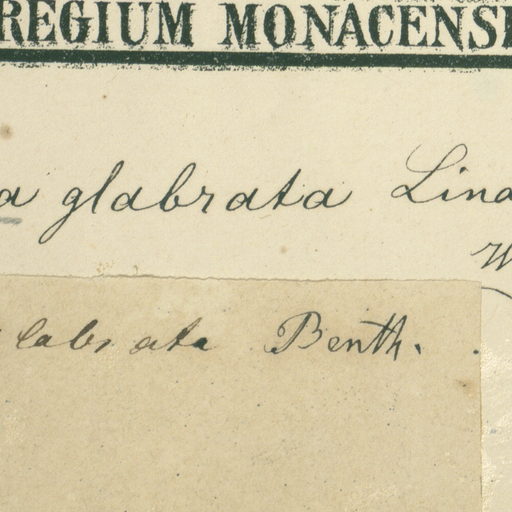 REGIUM MONACENS
a glabrata Lind
W
labrata Benth.